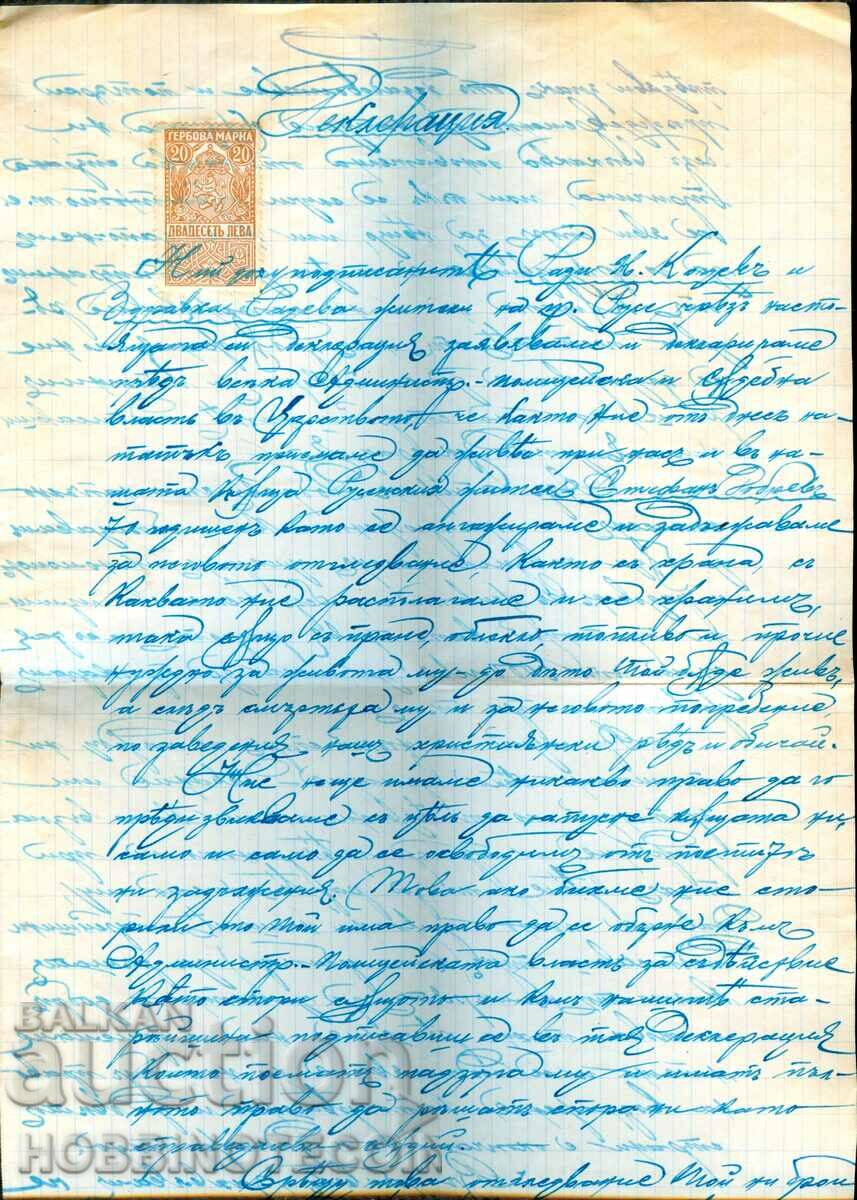 Декларация.
ГЕРБОВА МАРКА
20 20
ДВАДЕСЕТЬ ЛЕВА
Ний долуподписанитѣ Ради Н. Коцевъ и
Здравка Радева жители на гр. Русе чрѣзъ наст-
ящата си декларация заявяваме и декларираме
прѣдъ всѣка Админист.-полицейска и сѫдебна
власть въ Царството, че както ние отъ днесъ на-
татъкъ приемаме да живѣе при насъ и въ на-
шата кѫща Русенския житель Стефанъ
70 годишенъ като се ангажираме и задължаваме
за неговото отгледвание, както съ храна, съ
каквато ние располагаме и се хранимъ,
така сѫщо съ пране, облекло, топливо и прочие
нуждно за живота му - до дѣто той бѫде живъ,
а слѣдъ смъртьта му и за неговото погребение,
по заведения нашъ християнски рѣдъ и обичай.
Ние неще имаме никакво право да го
прѣдизвикваме съ цѣль да напусне кѫщата ни,
само и само да се освободимъ отъ
ни задължения. Това ако бихме ние сто-
рили то той има право да се обърне къмъ
Админист.-Полицейската власть за съдѣйствие
както стори сѫщото и къмъ нашитѣ ста-
рѣйшина подписавши се въ тая Декларация
които поематъ надзора му и иматъ пъл-
ното право да рѣшатъ спора ни като
Срѣщу това отгледвание той ни брои
BALKAN
auction
HOBBINO1.ECOM